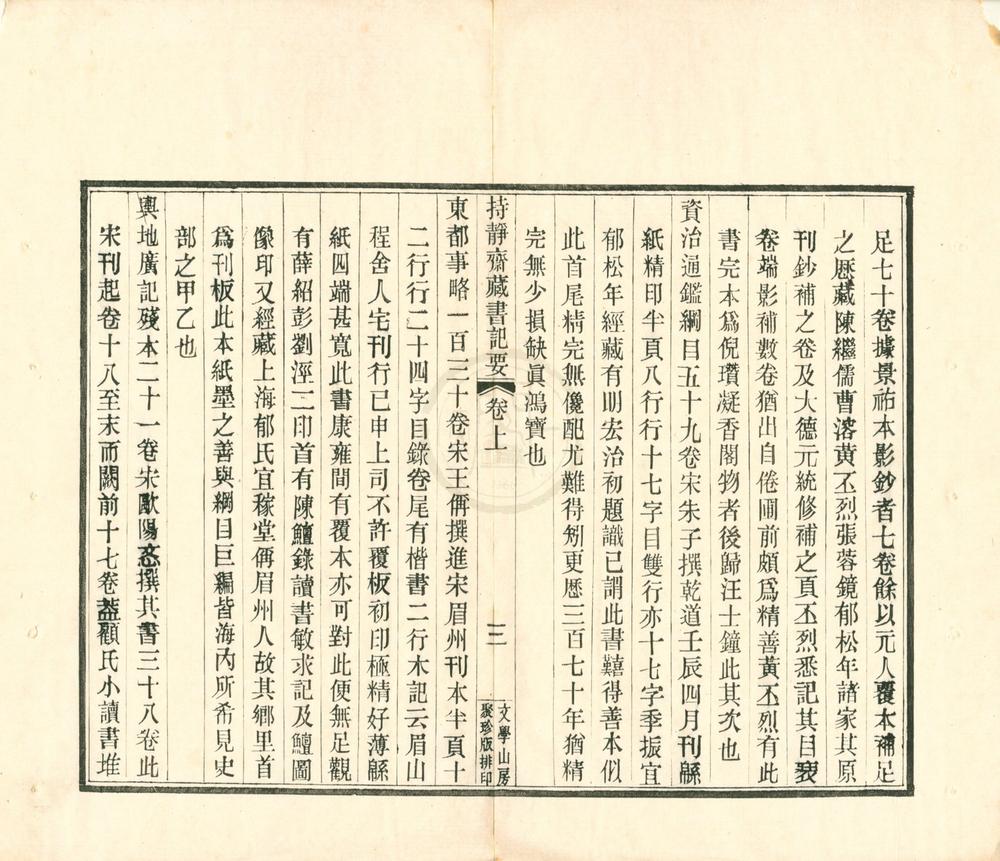 足七十卷據景祐本影鈔者七卷餘以元人覆本補足
之歷藏陳繼儒曹溶黃丕烈張蓉鏡郁松年諸家其原
刊鈔補之卷及大德元統修補之頁丕烈悉記其目裝
卷端影補數卷猶出自倦圃前頗爲精善黃丕烈有此
書完本爲倪瓚凝香閣物者後歸汪士鐘此其次也
資治通鑑綱目五十九卷宋朱子撰乾道壬辰四月刊緜
紙精印半頁八行行十七字目雙行亦十七字季振宜
郁松年經藏有明宏治初題識已謂此書囏得善本似
此首尾精完無儳配尤難得矧更歷三百七十年猶精
完無少損缺眞鴻寶也
持靜齋藏書記要 卷上 三 文學山房聚珍版排印
東都事略一百三十卷宋王偁撰進宋眉州刊本半頁十
二行行二十四字目錄卷尾有楷書二行木記云眉山
程舍人宅刊行已申上司不許覆板初印極精好薄緜
紙四端甚寬此書康雍間有覆本亦可對此便無足觀
有薛紹彭劉涇二印首有陳鱣錄讀書敏求記及鱣圖
像印又經藏上海郁氏宜稼堂偁眉州人故其鄉里首
爲刊板此本紙墨之善與綱目巨編皆海內所希見史
部之甲乙也
輿地廣記殘本二十一卷宋歐陽忞撰其書三十八卷此
宋刊起卷十八至末而闕前十七卷葢顧氏小讀書堆